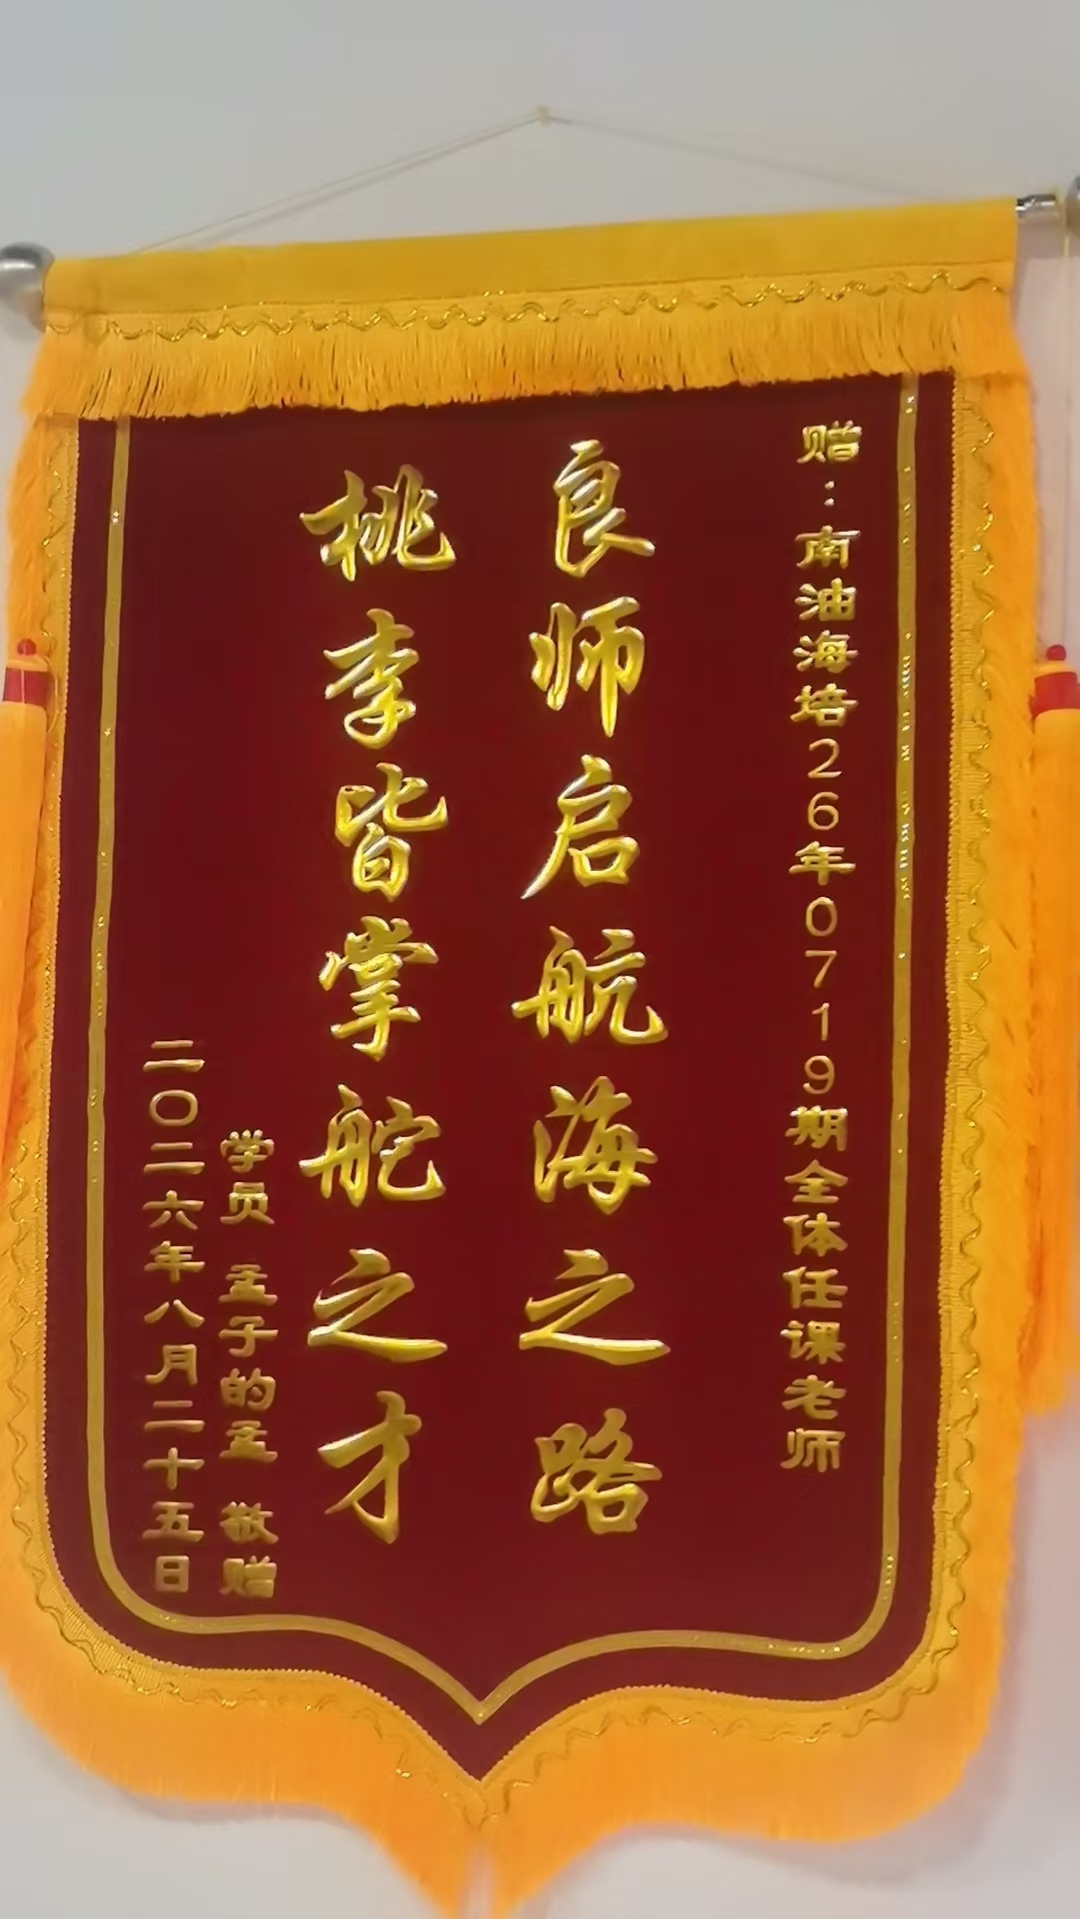 赠：南油海培26年0719期全体任课老师
良师启航海之路
桃李皆掌舵之才
学员 孟子的孟 敬赠
二〇二六年八月二十五日